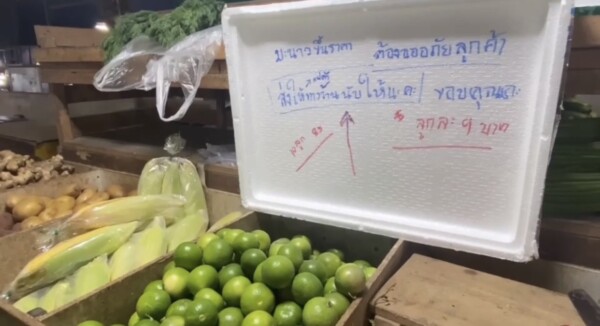 มะนาวขึ้นราคา ต้องขออภัยลูกค้า
สั่งให้ทางร้านนับให้นะคะ ขอบคุณค่ะ
ลูกละ 9 บาท